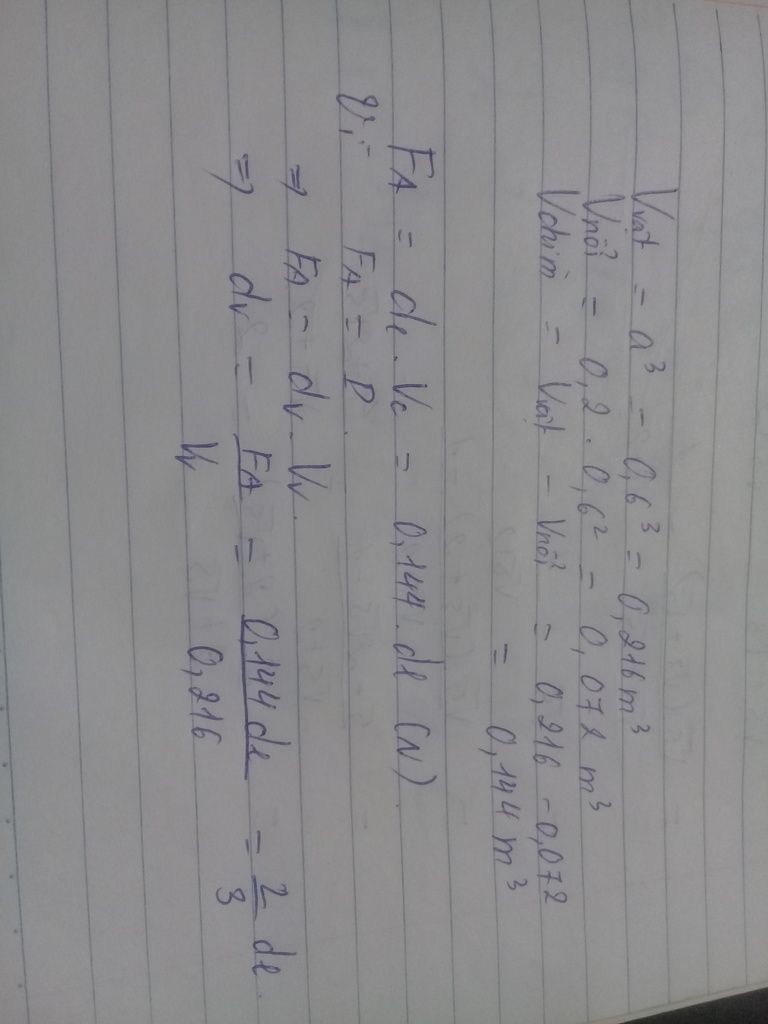 Vvật = a³ = 0,6³ = 0,216 m³
Vnổi = 0,2 . 0,6² = 0,072 m³
Vchìm = Vvật - Vnổi = 0,216 - 0,072
= 0,144 m³
FA = dl . Vc = 0,144 . dl (N)
Vì FA = P.
=> FA = dv . Vv.
=> dv = FA / Vv = 0,144 dl / 0,216 = 2/3 dl.